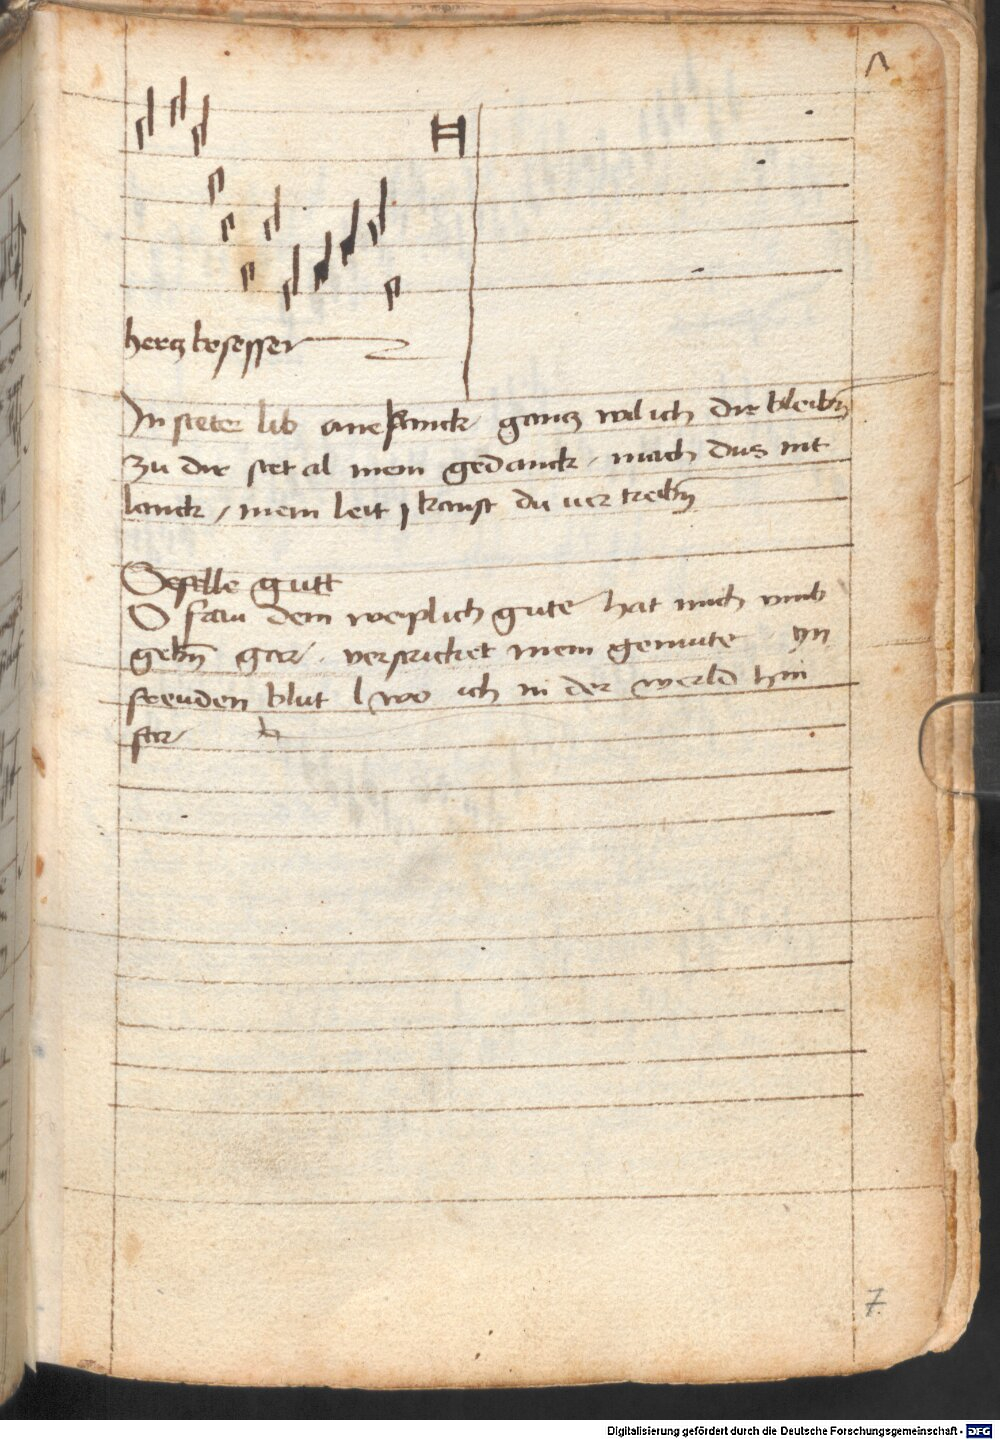 Λ
hercz besesser
In steter lib ane wanck gancz wil ich dir bleibn
zu dir stet al mein gedanck / mach dus nit
lanck / mein leit kanst du uer treibn
Geselle gutt
O fraw dein weiplich gute hat mich vmb
gebn gar . verstricket mein gemute yn
freuden blut wo ich in der werld hin
far
7.
Digitalisierung gefördert durch die Deutsche Forschungsgemeinschaft - DFG